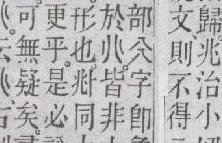 歸兆治小
文則不得
部𠔁字卽
於皆非
形也同
更乎是必
可無疑矣